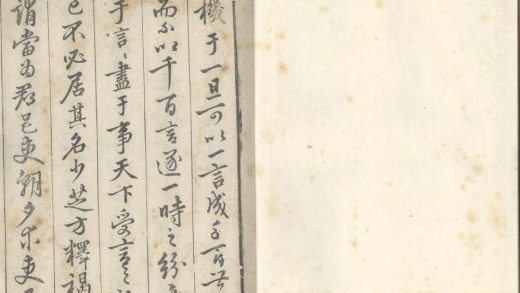 機于一旦可以一言成千百世
而不以千百言逐一時之紛
于言言盡于事天下受言之
已不必居其名少芝方釋褐
謂當為郡邑吏朝夕求吏